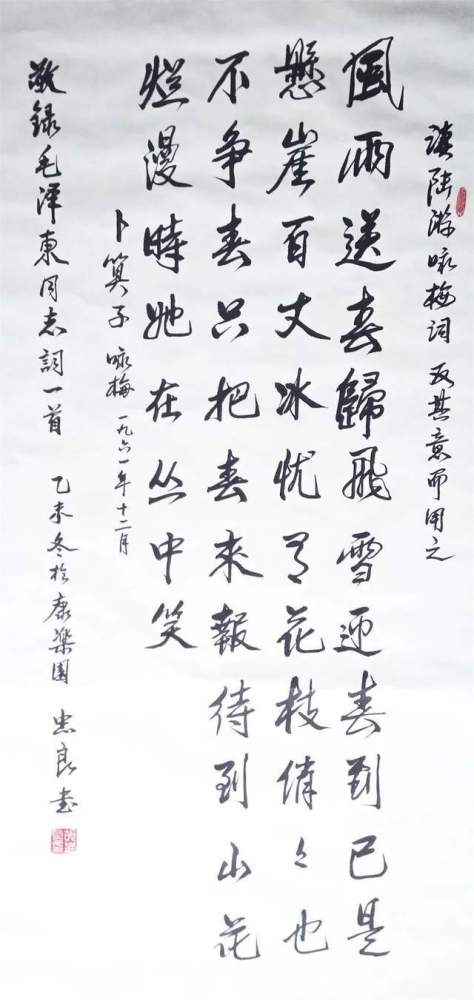 读陸游咏梅词 反其意而用之
風雨送春歸飛雪迎春到已是
懸崖百丈冰犹有花枝俏々也
不争春只把春来報待到山花
烂漫時她在丛中笑
卜算子 咏梅 一九六一年十二月
敬録毛泽東同志詞一首 乙未冬於康樂園 忠良书